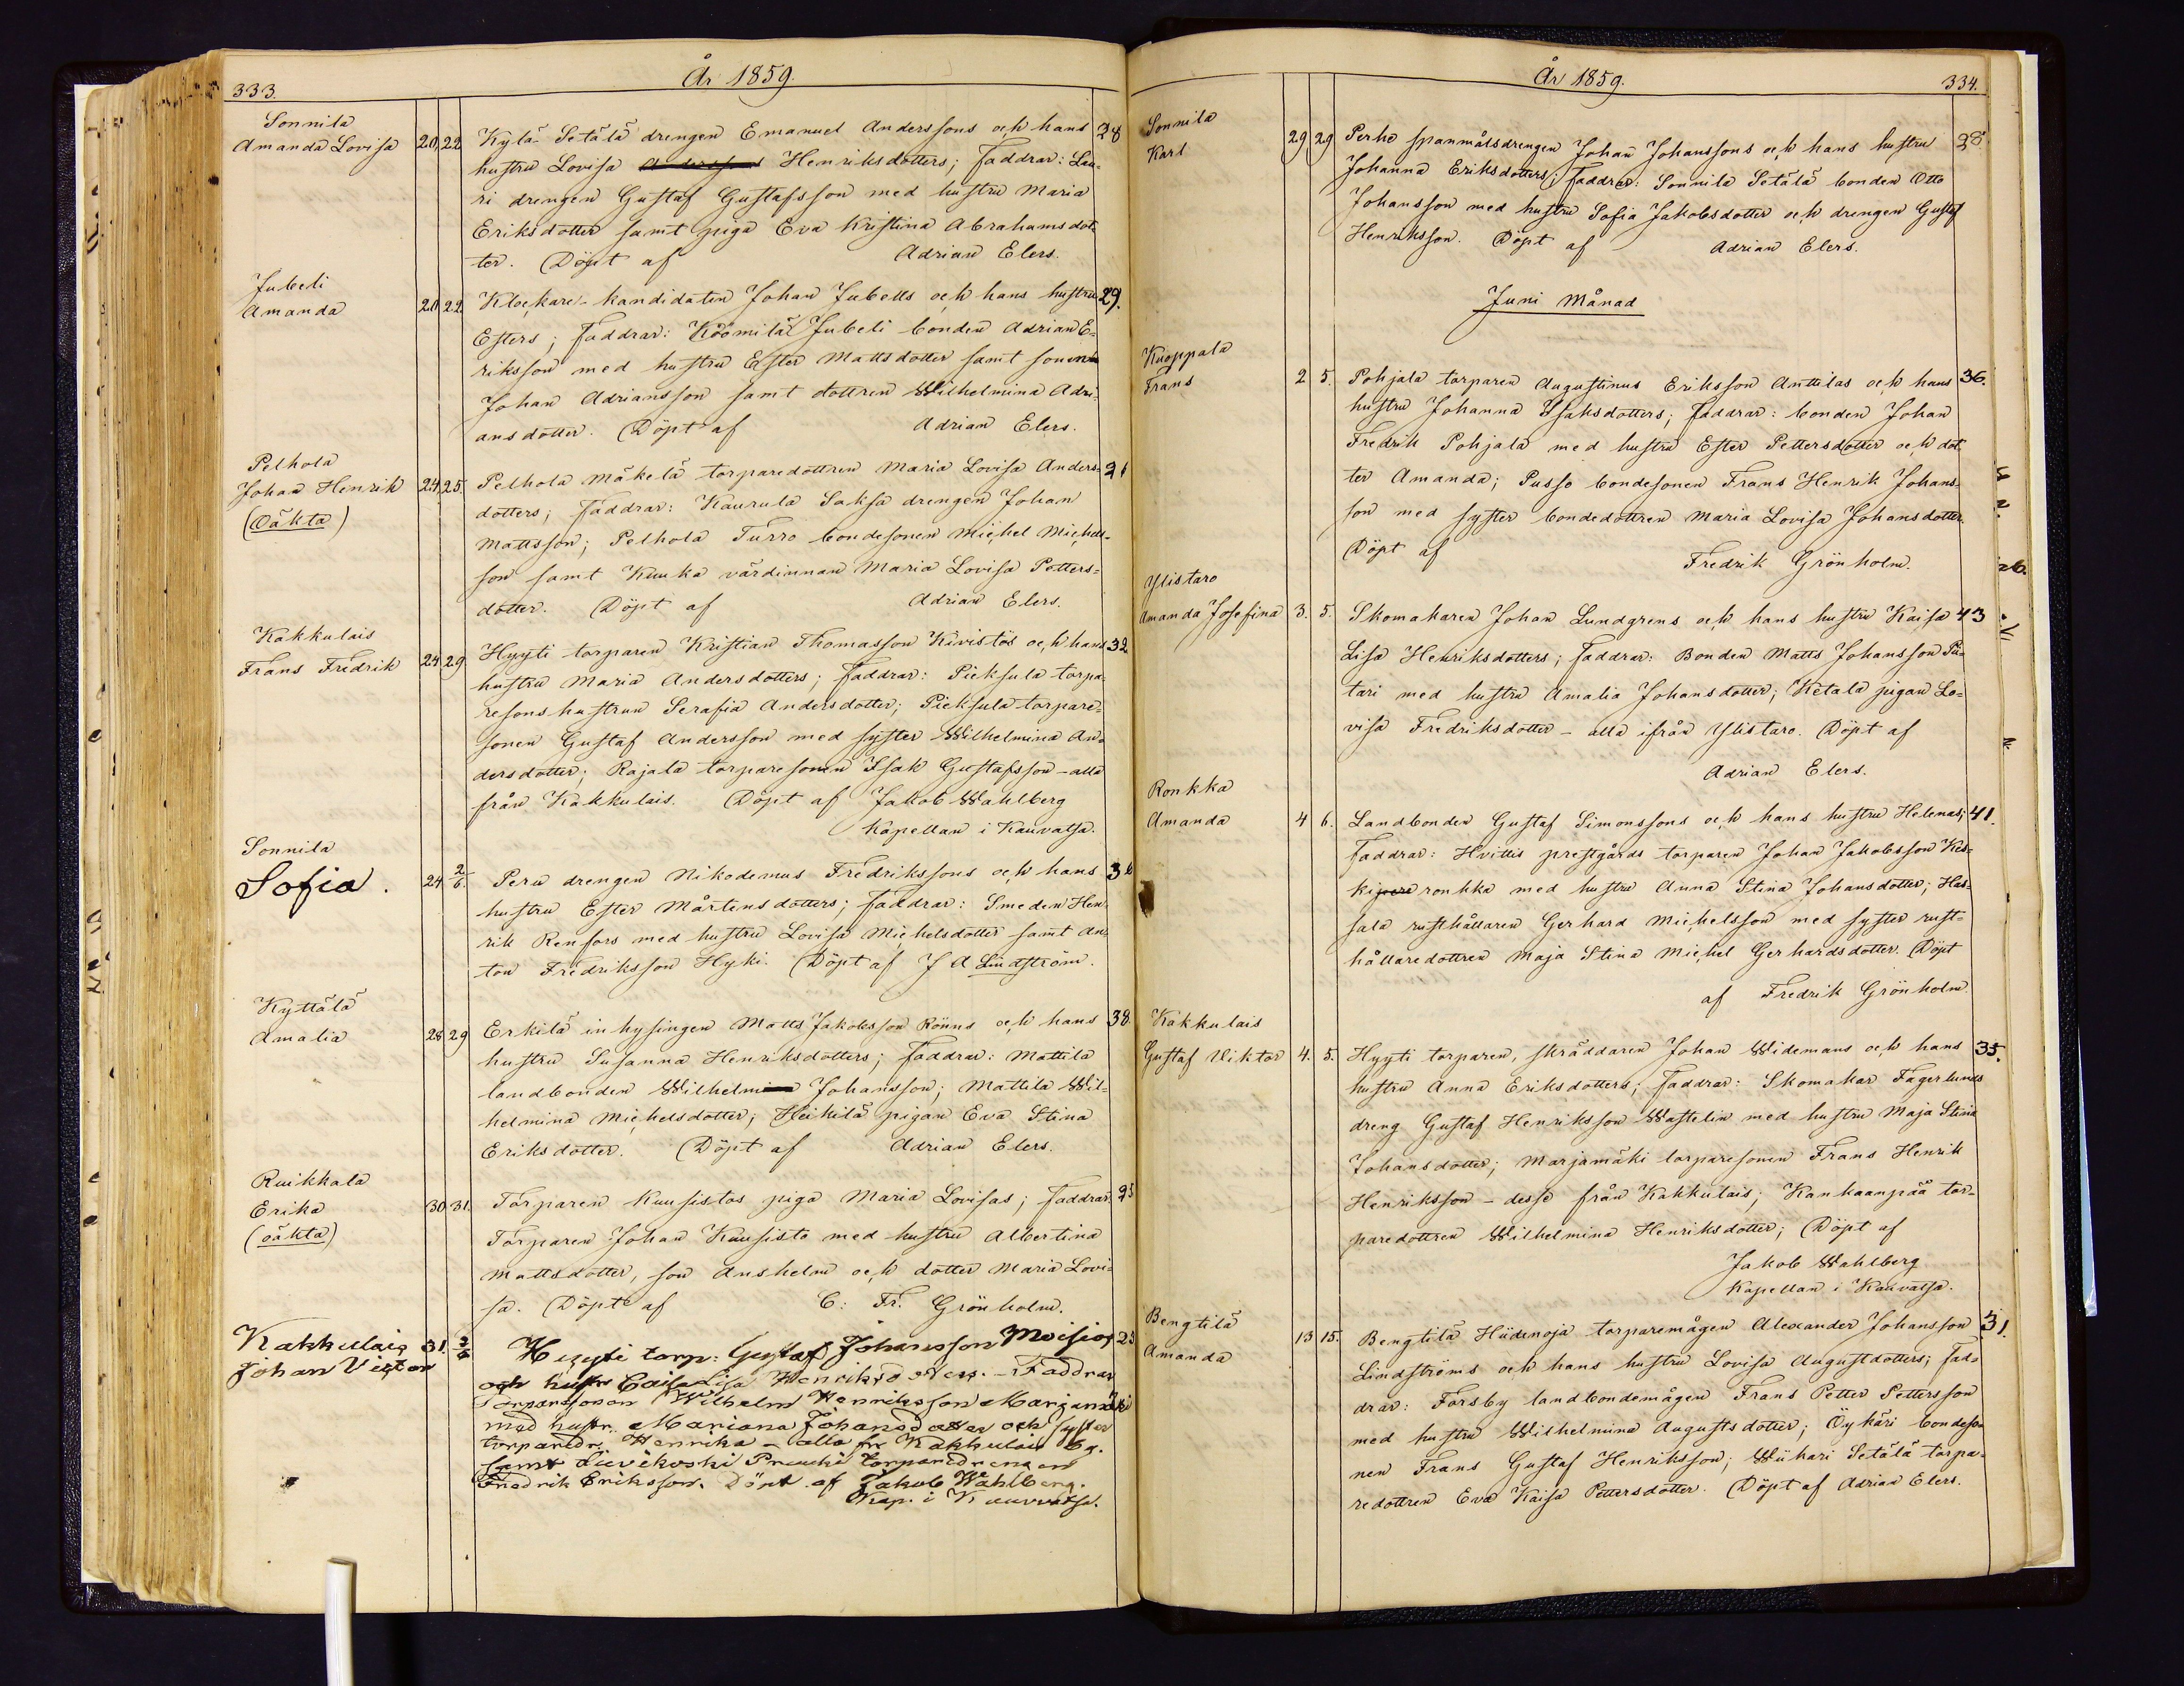 333.
År 1859.
Sonnila
Amanda Lovisa 20, 22 Kylä-Setälä drengen Emanuel Anderssons och hans 28
hustru Lovisa Anderssons Henriksdotters; faddrar: Lau-
ri drengen Gustaf Gustafsson med hustru Maria
Eriksdotter samt piga Eva Kristina Abrahamsdot-
ter. Döpt af Adrian Elers.
Jubeli
Amanda 20, 22 Klockare-kandidaten Johan Jubells och hans hustru 29.
Esters; faddrar: Köömilä Jubeli bonden Adrian E-
riksson med hustru Ester Mattsdotter samt sonen
Johan Adriansson samt dottren Wilhelmina Adri-
ansdotter. Döpt af Adrian Elers.
Pelhola
Johan Henrik 24, 25. Pelhola Mäkelä torparedottren Maria Lovisa Anders- 21
(Oäkta) dotters; faddrar: Kaurula Saksa drengen Johan
Mattsson; Pelhola Turro bondesonen Michel Michels-
son samt Kuuka värdinnan Maria Lovisa Petters-
dotter. Döpt af Adrian Elers.
Kakkulais
Frans Fredrik 24, 29 Hyyti torparen Kristian Thomasson Kivistös och hans 32
hustru Maria Andersdotters; faddrar: Pieksula torpa-
resonshustrun Serafia Andersdotter; Pieksula torpare-
sonen Gustaf Andersson med syster Wilhelmina An-
dersdotter; Rajala torparesonen Isak Gustafsson - alla
från Kakkulais. Döpt af Jakob Wahlberg
Kapellan i Kauvatsa.
Sonnila
Sofia. 24 2/6. Peru drengen Nikodemus Fredrikssons och hans 36
hustru Ester Mårtensdotters; faddrar: Smeden Hen-
rik Renfors med hustru Lovisa Michelsdotter samt An-
ton Fredriksson Hyki. Döpt af J A Lindström.
Kyttälä
Amalia 28 29 Erkilä inhysingen Matts Jakobsson Rönns och hans 38.
hustru Susanna Henriksdotters; faddrar: Mattila
landbonden Wilhelm Johansson; Mattila Wil-
helmina Michelsdotter; Heikilä pigan Eva Stina
Eriksdotter. Döpt af Adrian Elers.
Ruikkala
Erika 30 31. Torparen Kuusistos piga Maria Lovisas; faddrar: 25
(oäkta) Torparen Johan Kuusisto med hustru Albertina
Mattsdotter, son Anshelm och dotter Maria Lovi-
sa. Döpt af C: Fr. Grönholm.
Kakkulais 31. 3/6 Hyyti torp: Gustaf Johansson Moisios 23
Johan Victor och hustr Caisa Lisa Henriksdotters. - Faddrar
Torparesonen Wilhelm Henriksson Marjamäki
med hustr. Mariana Johansdotter och syster
torparedr. Henrika - alla fr Kakkulais by.
samt Luvikoski torparedrengen
Fredrik Eriksson. Döpt af Jakob Wahlberg.
Kap. i Kauvatsa.
År 1859.
334.
Sonnila
Karl 29 29 Perho spanmålsdrengen Johan Johanssons och hans hustru 38
Johanna Eriksdotters; faddrar: Sonnila Setälä bonden Otto
Johansson med hustru Sofia Jakobsdotter och drengen Gustaf
Henriksson. Döpt af Adrian Elers.
Juni Månad
Kuoppala
Frans 2 5. Pohjala torparen Augustinus Eriksson Anttilas och hans 36.
hustru Johanna Isaksdotters; faddrar: bonden Johan
Fredrik Pohjala med hustru Ester Pettersdotter och dot-
ter Amanda; Pusso bondesonen Frans Henrik Johans-
son med syster bondedottren Maria Lovisa Johansdotter.
Döpt af Fredrik Grönholm.
Ylistaro
Amanda Josefina 3. 5. Skomakaren Johan Lundgrens och hans hustru Kaisa 43
Lisa Henriksdotters; faddrar: Bonden Matts Johansson Pu-
tari med hustru Amalia Johansdotter; Ketala pigan Lo-
visa Fredriksdotter - alla ifrån Ylistaro. Döpt af
Adrian Elers.
Ronkka
Amanda 4 6. Landbonden Gustaf Simonssons och hans hustru Helenas; 41.
faddrar: Hvittis prestgårds torparen Johan Jakobsson Kes-
ki ronkka med hustru Anna Stina Johansdotter; Has-
sala rusthållaren Gerhard Michelsson med syster rust-
hållaredottren Maja Stina Michel Gerhardsdotter. Döpt
af Fredrik Grönholm.
Kakkulais
Gustaf Viktor 4. 5. Hyyti torparen, skräddaren Johan Widemans och hans 35.
hustru Anna Eriksdotters; faddrar: Skomakar Fagerlunds
dreng Gustaf Henriksson Wastelin med hustru Maja Stina
Johansdotter; Marjamäki torparesonen Frans Henrik
Henriksson - desse från Kakkulais; Kankaanpää tor-
paredottren Wilhelmina Henriksdotter; Döpt af
Jakob Wahlberg
Kapellan i Kauvatsa.
Bengtilä
Amanda 13 15. Bengtilä Hiidenoja torparemågen Alexander Johansson 31.
Lindströms och hans hustru Lovisa Augustdotters; fad-
drar: Forsby landbondemågen Frans Petter Pettersson
med hustru Wilhelmina Augustsdotter; Öykäri bondeso-
nen Frans Gustaf Henriksson; Wiikari Setälä torpa-
redottren Eva Kaisa Pettersdotter. Döpt af Adrian Elers.